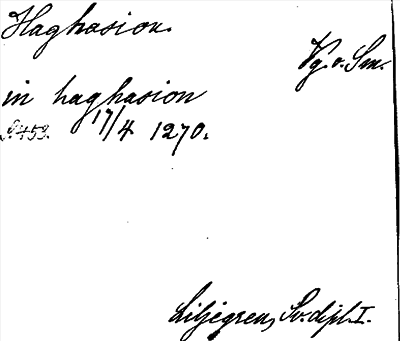 Haghasion.
Vg. o. Sm.
in haghasion
S. 459. 17/4 1270.
Liljegren, Sv. dipl. I.